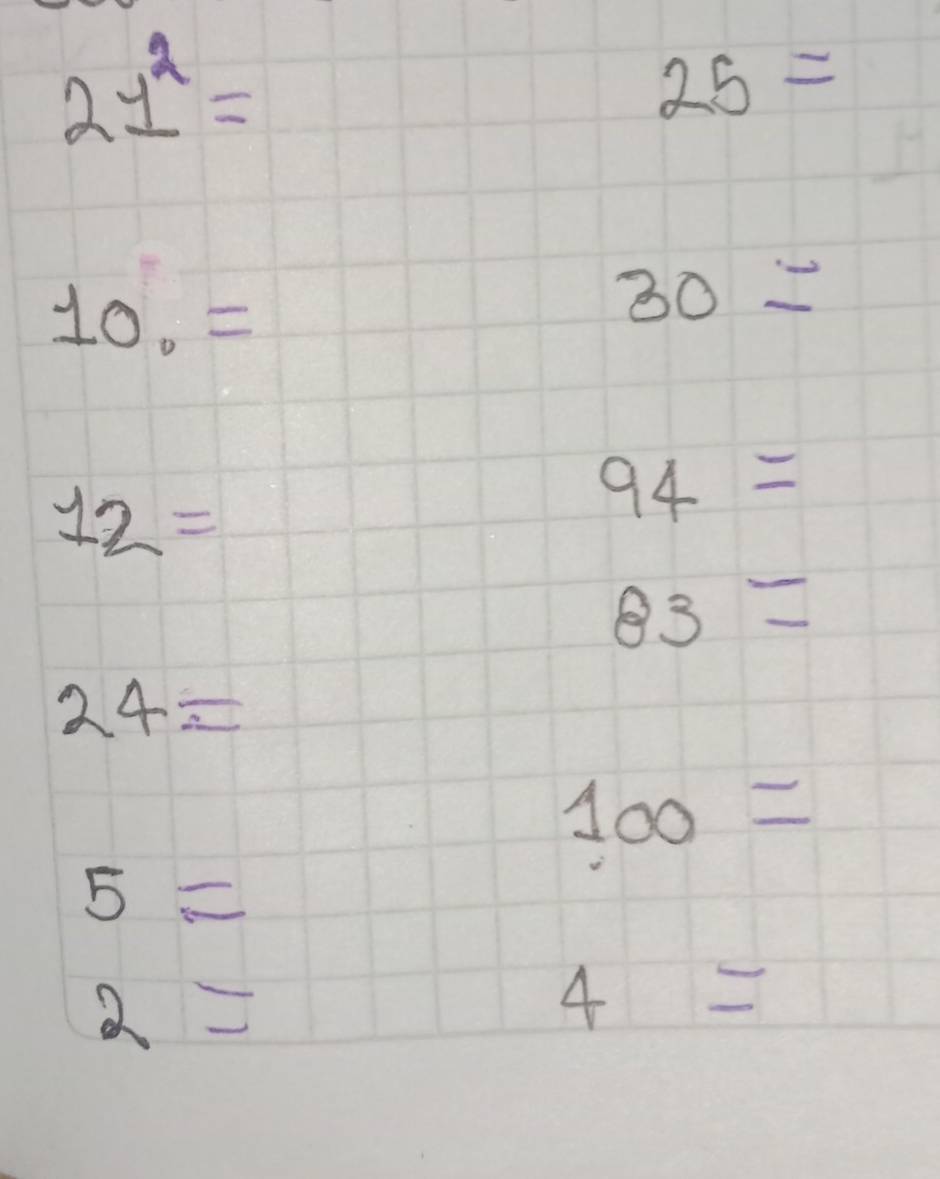 21² =
25 =
10. =
30 =
12 =
94 =
83 =
24 =
100 =
5 =
2 =
4 =